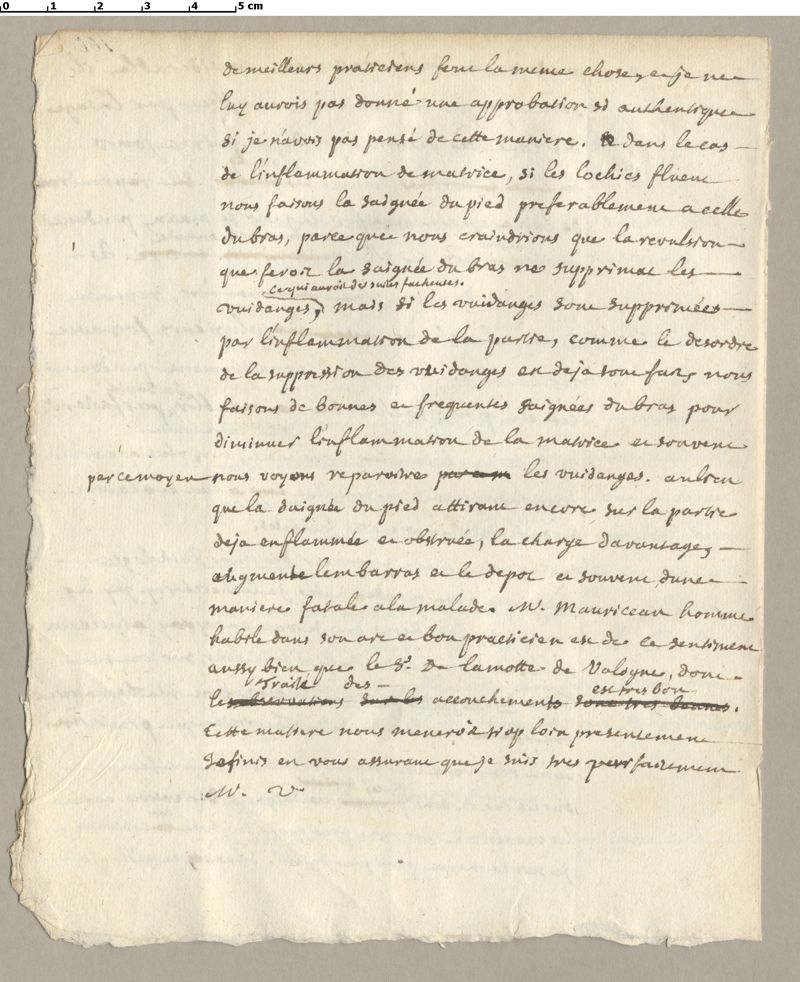 0 1 2 3 4 5 cm
de meilleurs praticiens font la meme chose, et je ne
luy aurois pas donné une approbation si authentique
si je n'avois pas pensé de cette maniere. dans le cas
de l'inflammation de matrice, si les lochies fluent
nous faisons la saignée du pied preferablement a celle
du bras, parce que nous craindrions que la revulsion
que feroit la saignée du bras ne supprimat les
ce qui auroit des suites facheuses.
vuidanges, mais si les vuidanges sont supprimées
par l'inflammation de la partie, comme le desordre
de la suppression des vuidanges est deja tout fait, nous
faisons de bonnes et frequentes saignées du bras pour
diminuer l'inflammation de la matrice et souvent
par ce moyen nous voyons reparoitre par ce m les vuidanges. au lieu
que la saignée du pied attirant encore sur la partie
deja enflammée et obstruée, la charge davantage,
augmente lembarras et le depot et souvent dune
maniere fatale a la malade. Mr. Mauriceau homme
habile dans son art et bon practicien est de ce sentiment
aussy bien que le Sr. De lamotte de Valogne, dont
Traité des est tres bon
les observations sur les accouchements sont tres bonnes.
Cette matiere nous meneroit trop loin presentement
je finis en vous assurant que je suis tres parfaitement
Mr. V